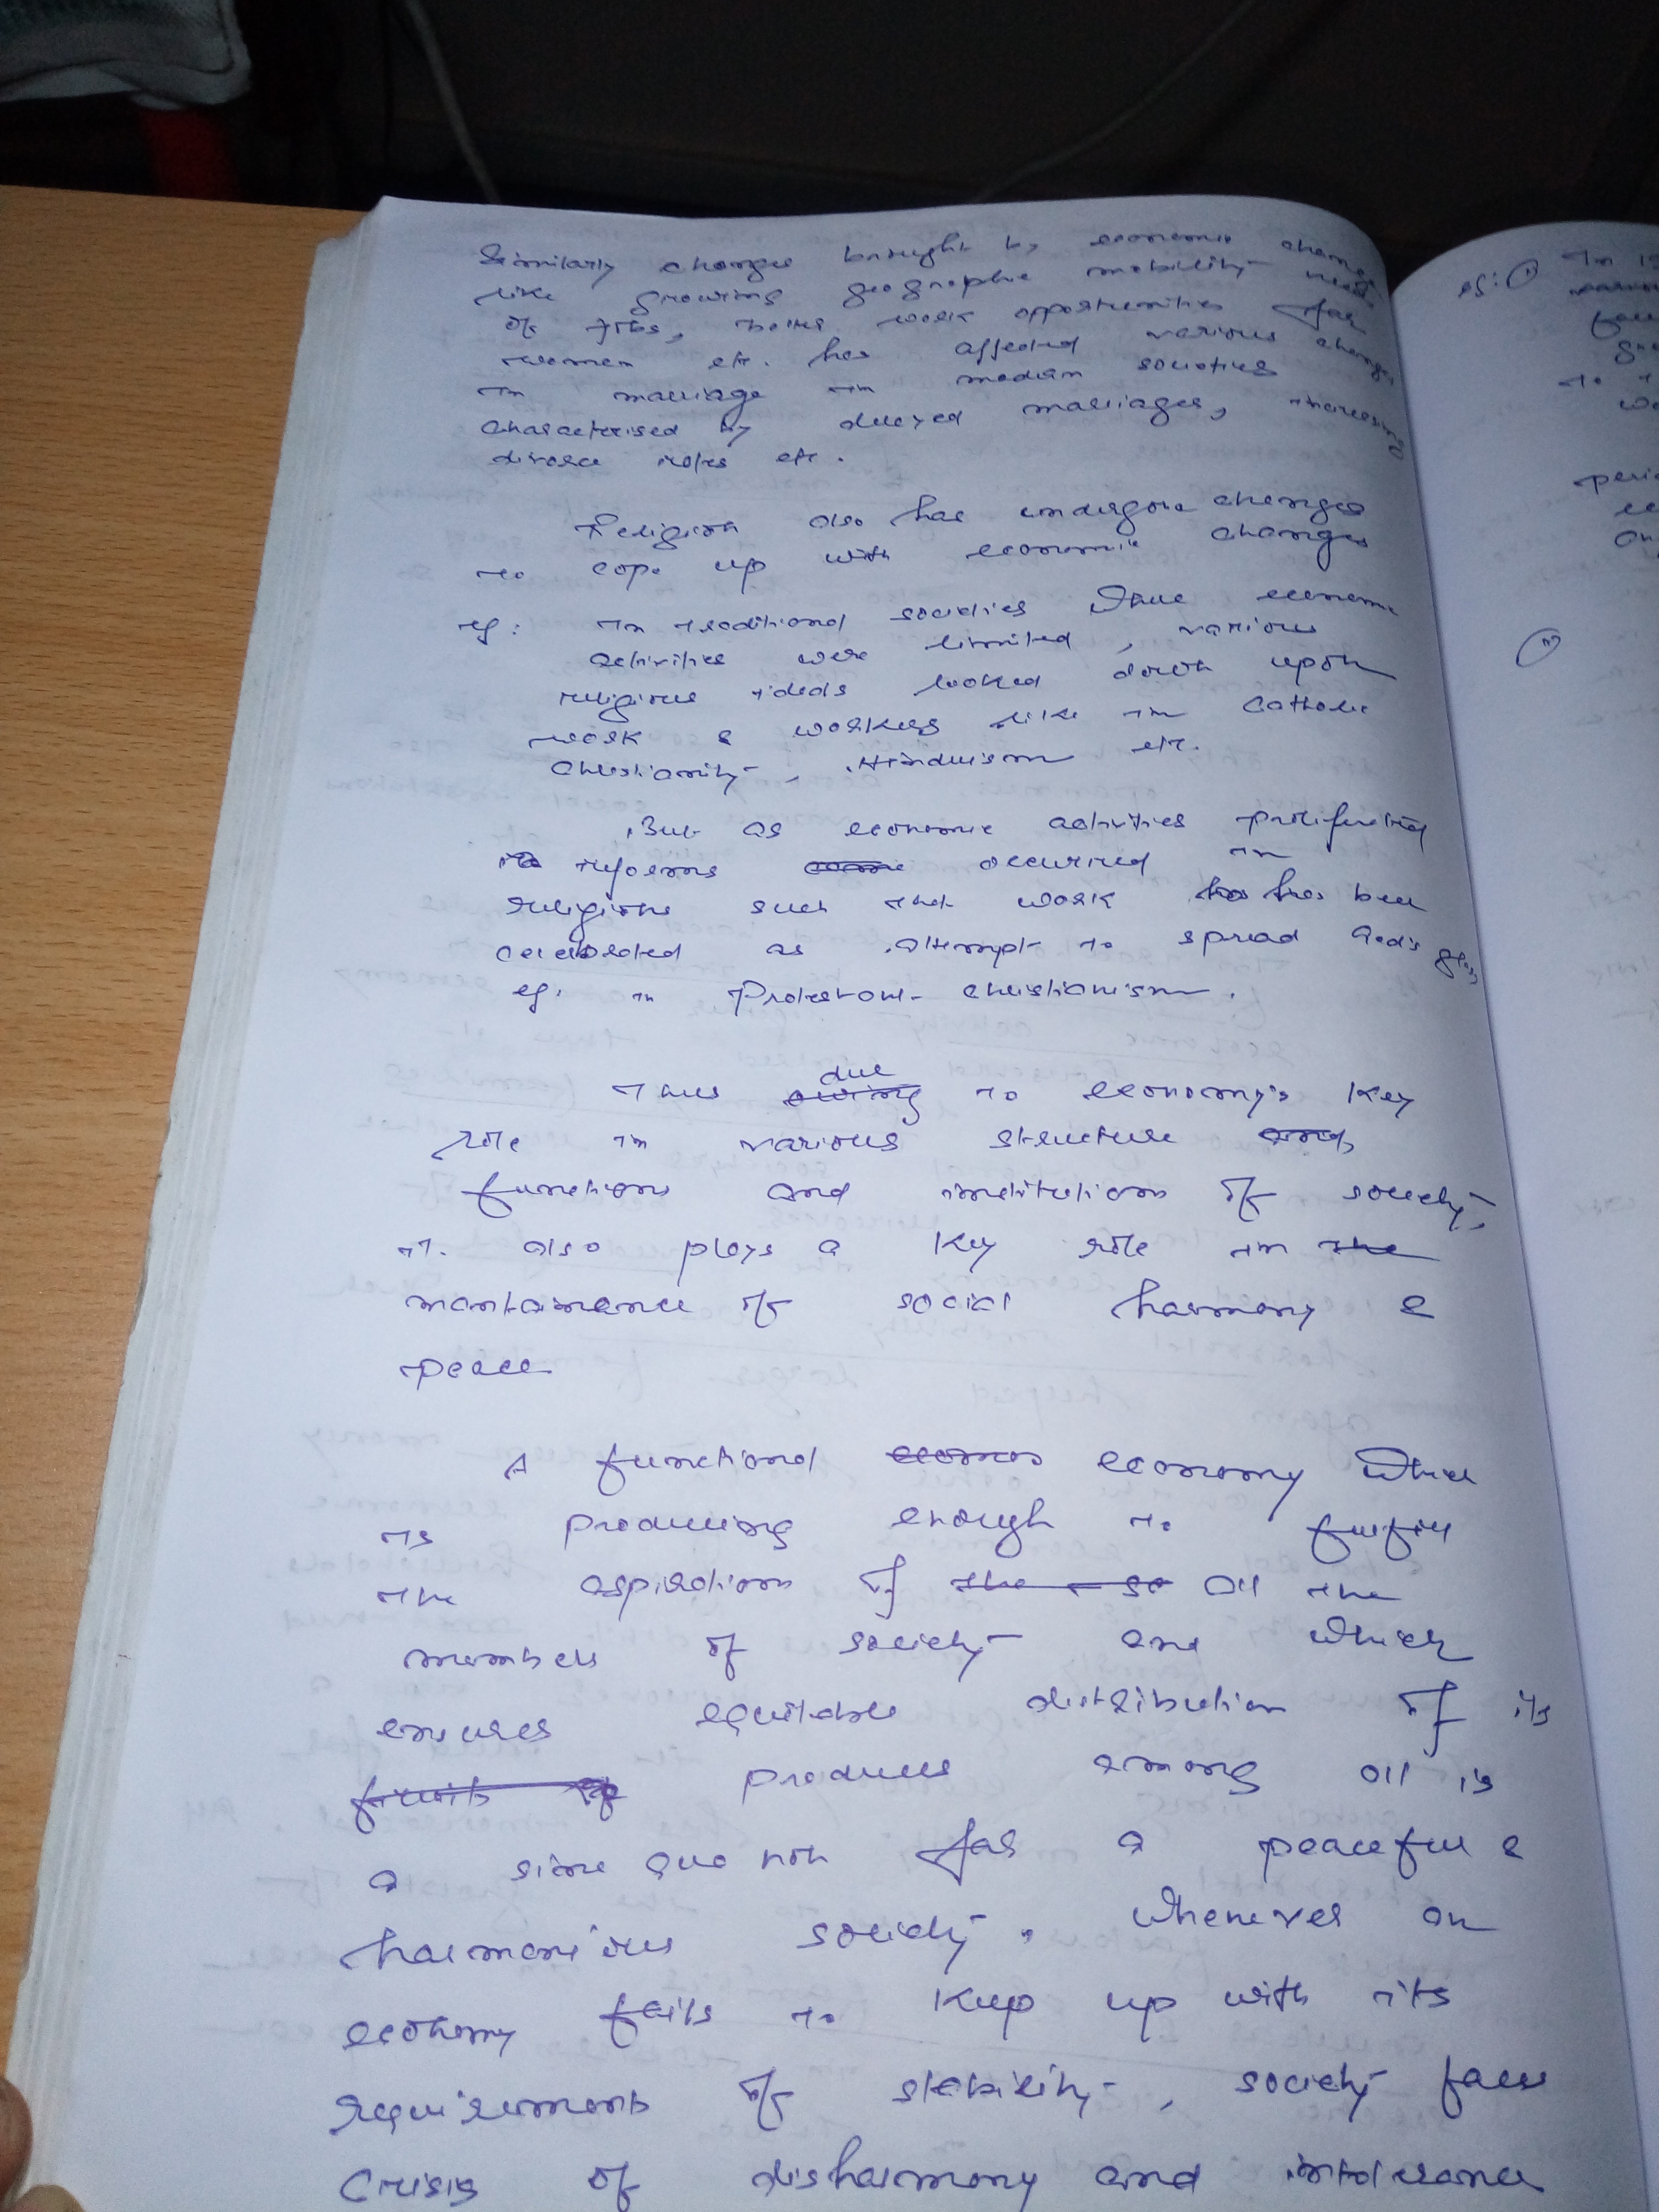 Similarly changes brought by economic changes
like growing geographic mobility needs
of jobs, better work opportunities for
women etc. has affected various changes
in marriage in modern societies
characterised by delayed marriages, increasing
divorce rates etc.
Religion also has undergone changes
to cope up with economic changes
eg: In traditional societies where economic
activities were limited, various
religious ideals looked down upon
work & workers like in Catholic
Christianity, Hinduism etc.
But as economic activities proliferated
reforms occurred in
religions such that work has been
celebrated as attempt to spread God's glory
eg. in Protestant Christianism.
Thus due to economy's key
role in various structure
functions and institutions of society,
it also plays a key role in
maintainence of social harmony &
peace
A functional economy which
is producing enough to fulfill
the aspirations of all the
members of society and which
ensures equitable distribution of its
produces among all is
a sine qua non for a peaceful &
harmonious society. Whenever an
economy fails to keep up with its
requirements of stability, society faces
crisis of disharmony and intolerance
eg: ①
In
to
peri